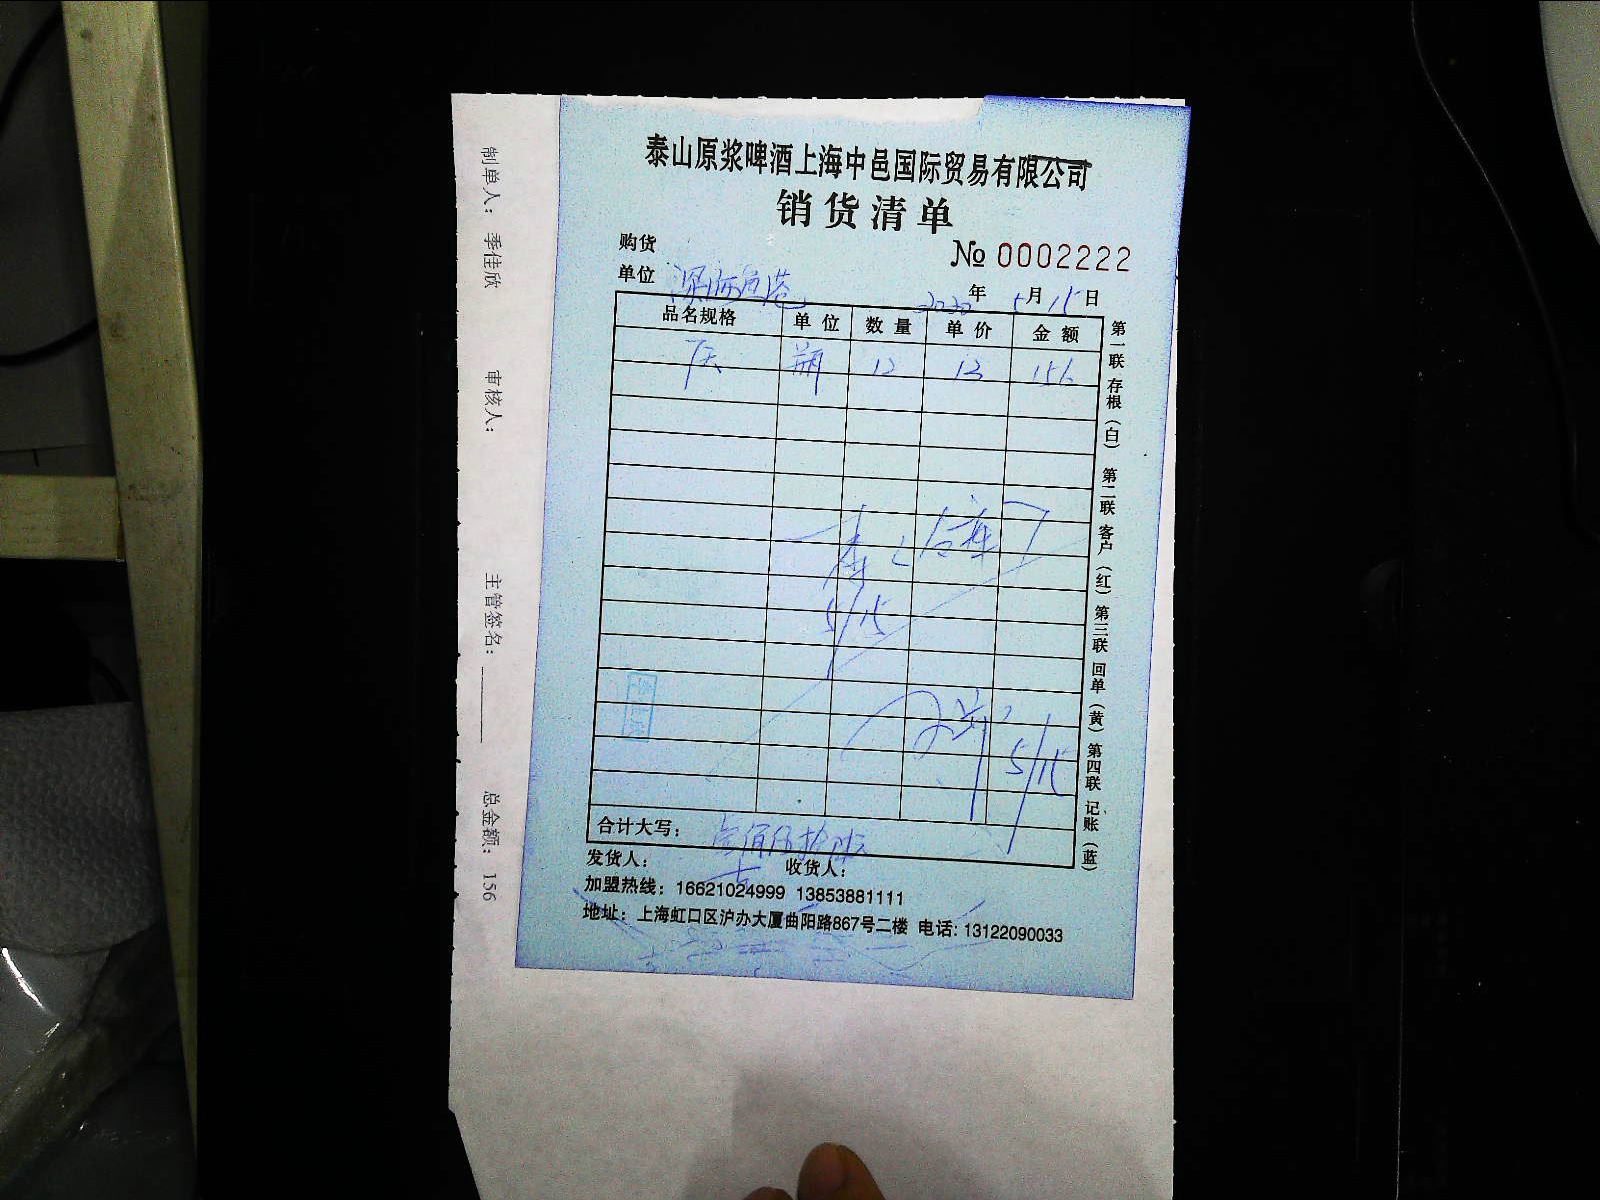 泰山原浆啤酒上海中邑国际贸易有限公司
销货清单
购货
单位
№ 0002222
2020年5月15日
品名规格 单位 数量 单价 金额
7天 瓶 12 13 156
5/15
5/15
合计大写：
发货人： 收货人：
加盟热线：16621024999 13853881111
地址：上海虹口区沪办大厦曲阳路867号二楼 电话: 13122090033
第一联 存根（白） 第二联 客户（红） 第三联 回单（黄） 第四联 记账（蓝）
制单人： 季佳欣 审核人： 主管签名： 总金额： 156